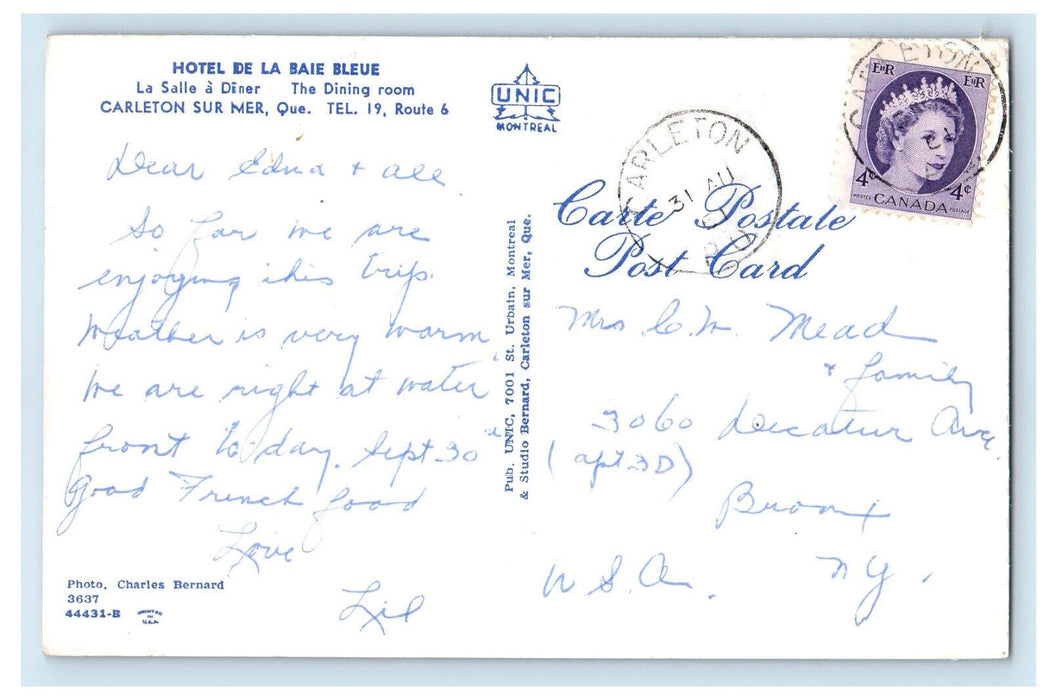 HOTEL DE LA BAIE BLEUE
La Salle à Dîner The Dining room
CARLETON SUR MER, Que. TEL. 19, Route 6
UNIC
MONTREAL
Dear Edna + all
So far we are
enjoying this trip.
Weather is very warm
We are right at water
front to-day. Sept 30
Good French food
Love
Lil
Photo. Charles Bernard
3637
44431-B
PRINTED
IN
U.S.A.
Pub. UNIC, 7001 St. Urbain, Montreal
& Studio Bernard, Carleton sur Mer, Que.
CARLETON
31 AU
P Q
EIIR EIIR
4¢ 4¢
POSTES CANADA POSTAGE
CARLETON
Carte Postale
Post Card
Mrs C. M. Mead
+ family
3060 Decatur Ave.
(apt 3D)
Bronx
U.S.A. NY.